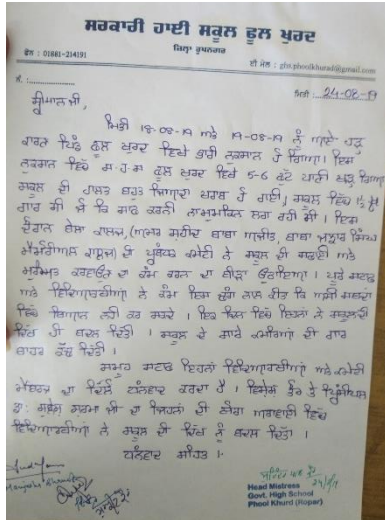 ਸਰਕਾਰੀ ਹਾਈ ਸਕੂਲ ਫੂਲ ਖੁਰਦ
ਜ਼ਿਲ੍ਹਾ ਰੂਪਨਗਰ
ਫੋਨ : 01881-214191
ਈ ਮੇਲ : ghs.phoolkhurd@gmail.com
ਨੰ.
ਮਿਤੀ 24-08-19
ਸ਼੍ਰੀਮਾਨ ਜੀ,
ਮਿਤੀ 18-08-19 ਅਤੇ 19-08-19 ਨੂੰ ਆਏ ਹੜ੍ਹ
ਕਾਰਨ ਪਿੰਡ ਫੂਲ ਖੁਰਦ ਵਿਖੇ ਭਾਰੀ ਨੁਕਸਾਨ ਹੋ ਗਿਆ। ਇਸ
ਨੁਕਸਾਨ ਵਿੱਚ ਸ.ਹ.ਸ ਫੂਲ ਖੁਰਦ ਵਿਖੇ 5-6 ਫੁੱਟ ਪਾਣੀ ਗਿਆ
ਸਕੂਲ ਦੀ ਹਾਲਤ ਬਹੁਤ ਜਿਆਦਾ ਖਰਾਬ ਹੋ ਗਈ, ਸਕੂਲ ਵਿੱਚ
ਗਾਰ ਸੀ ਜੋ ਕਿ ਸਾਫ ਕਰਨੀ ਨਾਮੁਮਕਿਨ ਲਗ ਰਹੀ ਸੀ। ਇਸ
ਦੌਰਾਨ ਬੇਲਾ ਕਾਲਜ, (ਅਮਰ ਸ਼ਹੀਦ ਬਾਬਾ ਅਜੀਤ, ਬਾਬਾ ਜੁਝਾਰ ਸਿੰਘ
ਮੈਮੋਰੀਅਲ ਕਾਲਜ) ਦੀ ਪ੍ਰਬੰਧਕ ਕਮੇਟੀ ਨੇ ਸਕੂਲ ਦੀ ਸਫਾਈ ਅਤੇ
ਮੁਰੰਮਤ ਕਰਵਾਉਣ ਦਾ ਕੰਮ ਕਰਨ ਦਾ ਬੀੜਾ ਉਠਾਇਆ। ਪੂਰੇ ਸਟਾਫ
ਅਤੇ ਵਿਦਿਆਰਥੀਆਂ ਨੇ ਕੰਮ ਇਸ ਢੰਗ ਨਾਲ ਕੀਤਾ ਕਿ ਅਸੀਂ ਸ਼ਬਦਾਂ
ਵਿੱਚ ਬਿਆਨ ਨਹੀਂ ਕਰ ਸਕਦੇ। ਇਕ ਦਿਨ ਵਿੱਚ ਇਹਨਾਂ ਨੇ ਸਕੂਲ ਦੀ
ਦਿੱਖ ਹੀ ਬਦਲ ਦਿੱਤੀ। ਸਕੂਲ ਦੇ ਸਾਰੇ ਕਮਰਿਆਂ ਦੀ ਗਾਰ
ਬਾਹਰ ਕੱਢ ਦਿੱਤੀ।
ਸਮੂਹ ਸਟਾਫ ਇਹਨਾਂ ਵਿਦਿਆਰਥੀਆਂ ਅਤੇ ਕਮੇਟੀ
ਮੈਂਬਰਜ਼ ਦਾ ਦਿੱਲੋਂ ਧੰਨਵਾਦ ਕਰਦਾ ਹੈ। ਵਿਸ਼ੇਸ਼ ਤੌਰ ਤੇ ਪ੍ਰਿੰਸੀਪਲ
ਡਾ: ਸ਼ਰਮਾ ਜੀ ਦਾ ਜਿਹਨਾਂ ਦੀ ਯੋਗ ਅਗਵਾਈ ਵਿੱਚ
ਵਿਦਿਆਰਥੀਆਂ ਨੇ ਸਕੂਲ ਦੀ ਦਿੱਖ ਨੂੰ ਬਦਲ ਦਿੱਤੀ।
ਧੰਨਵਾਦ ਸਹਿਤ।
Head Mistress
Govt. High School
Phool Khurd (Ropar)